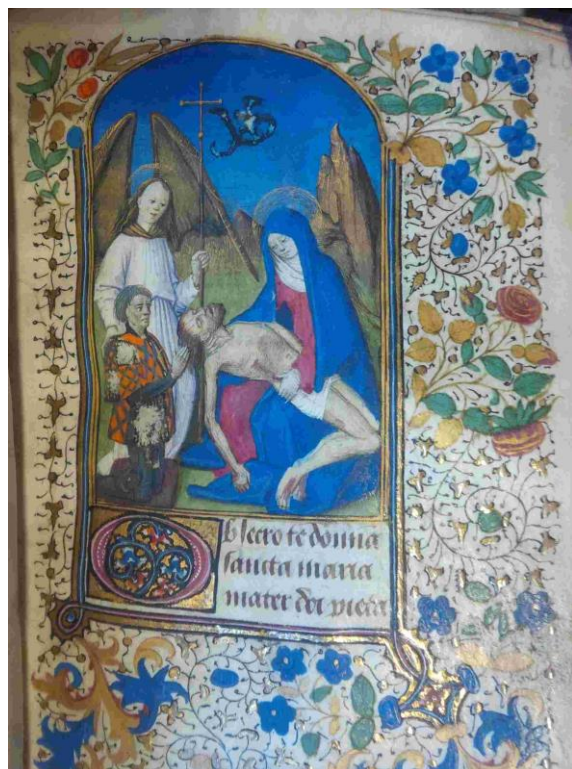 Obsecro te domina
sancta maria
mater dei pieta